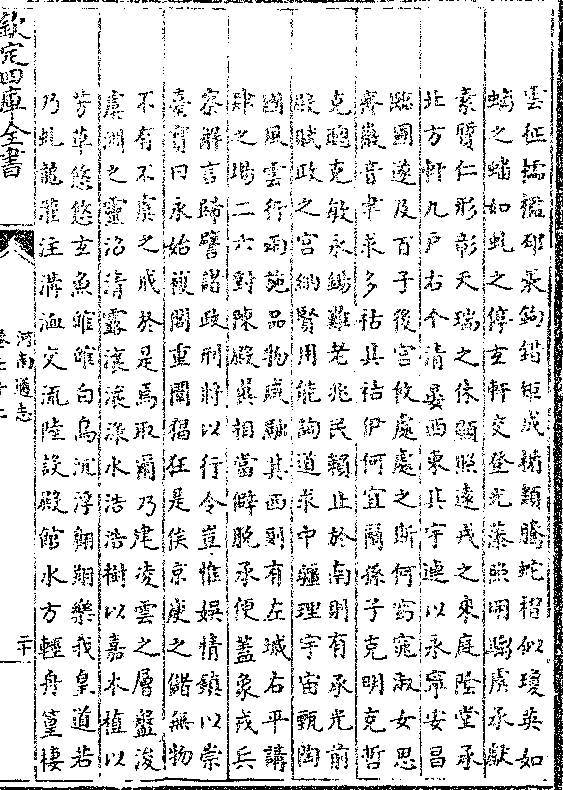 雲征櫺檻邳張鉤錯矩成楯類騰蛇槢似瓊英如
螭之蟠如虬之停玄軒交登光藻照明騶虞承獻
素質仁形彰天瑞之休顯照遠戎之來庭陰堂承
北方軒九戶右个清晏西東其宇連以永寧安昌
臨圃遂及百子後宮攸處處之斯何窈窕淑女思
齊徽音聿求多祜其祜伊何宜爾孫子克明克哲
克聰克敏永錫難老兆民賴止於南則有承光前
殿賦政之宮納賢用能詢道求中疆理宇宙甄陶
國風雲行雨施品物咸融其西則有左墄右平講
肄之場二六對陳殿翼相當僻脫承便蓋象戎兵
察解言歸譬諸政刑將以行令豈惟娛情鎮以崇
臺實曰永始複閣重闈猖狂是俟京庾之儲無物
不有不虞之戒於是焉取爾乃建凌雲之層盤浚
虞淵之靈沼清露瀼瀼淥水浩浩樹以嘉木植以
芳草悠悠玄魚皠皠白鳥沉浮翺翔樂我皇道若
乃虬龍灌注溝洫交流陸設殿館水方輕舟篁棲
欽定四庫全書
河南通志
卷七十二
二十